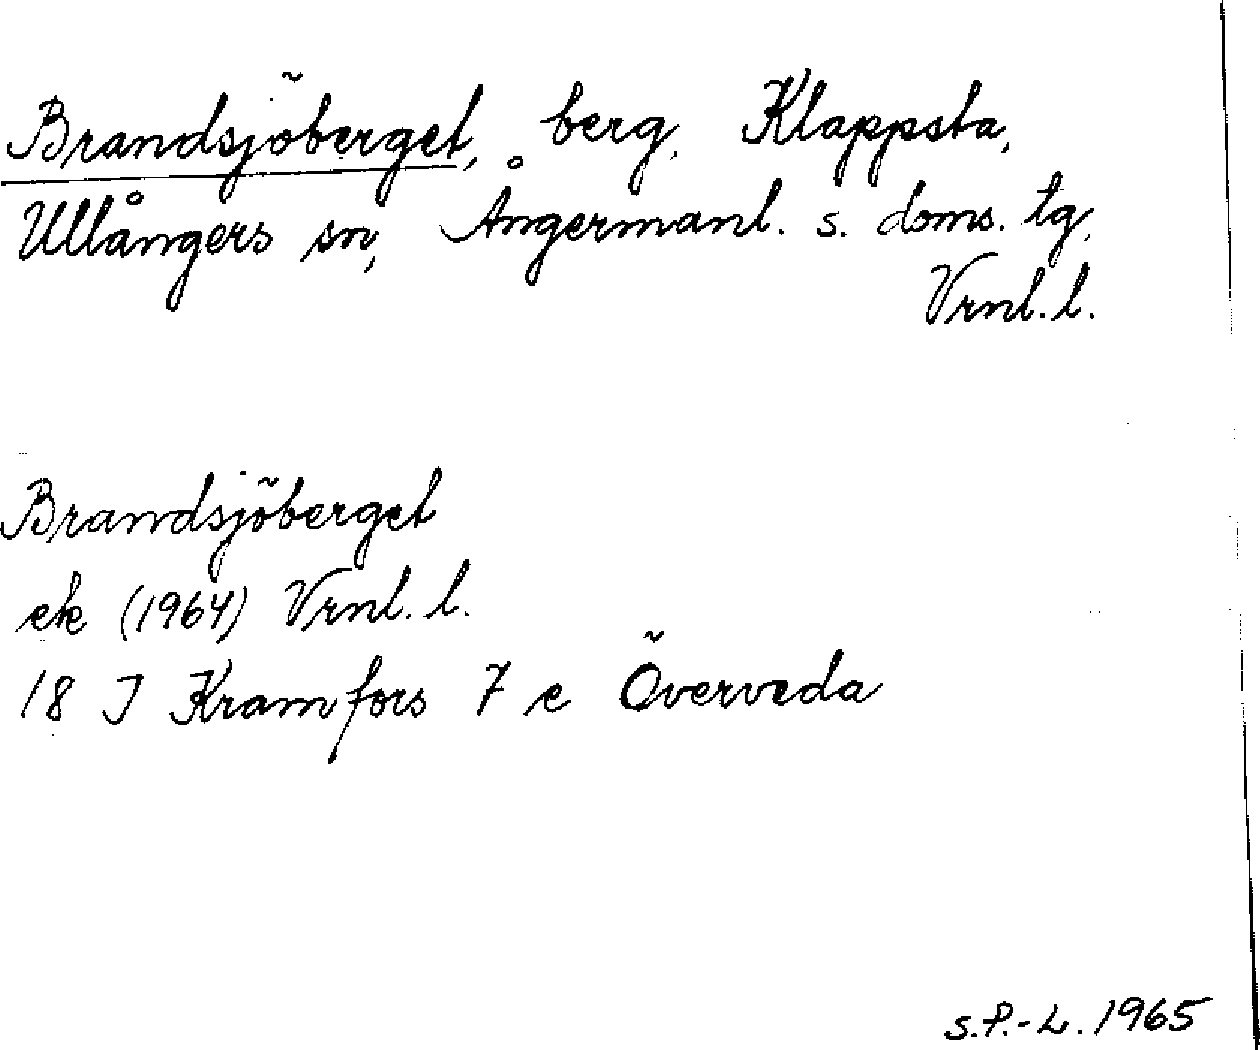 Brandsjöberget, berg, Klappsta,
Ullångers sn, Ångermanl. s. doms. tg,
Vrnl. l.
Brandsjöberget
ek (1964) Vrnl. l.
18 J Kramfors 7 e Överveda
S.P.-L. 1965